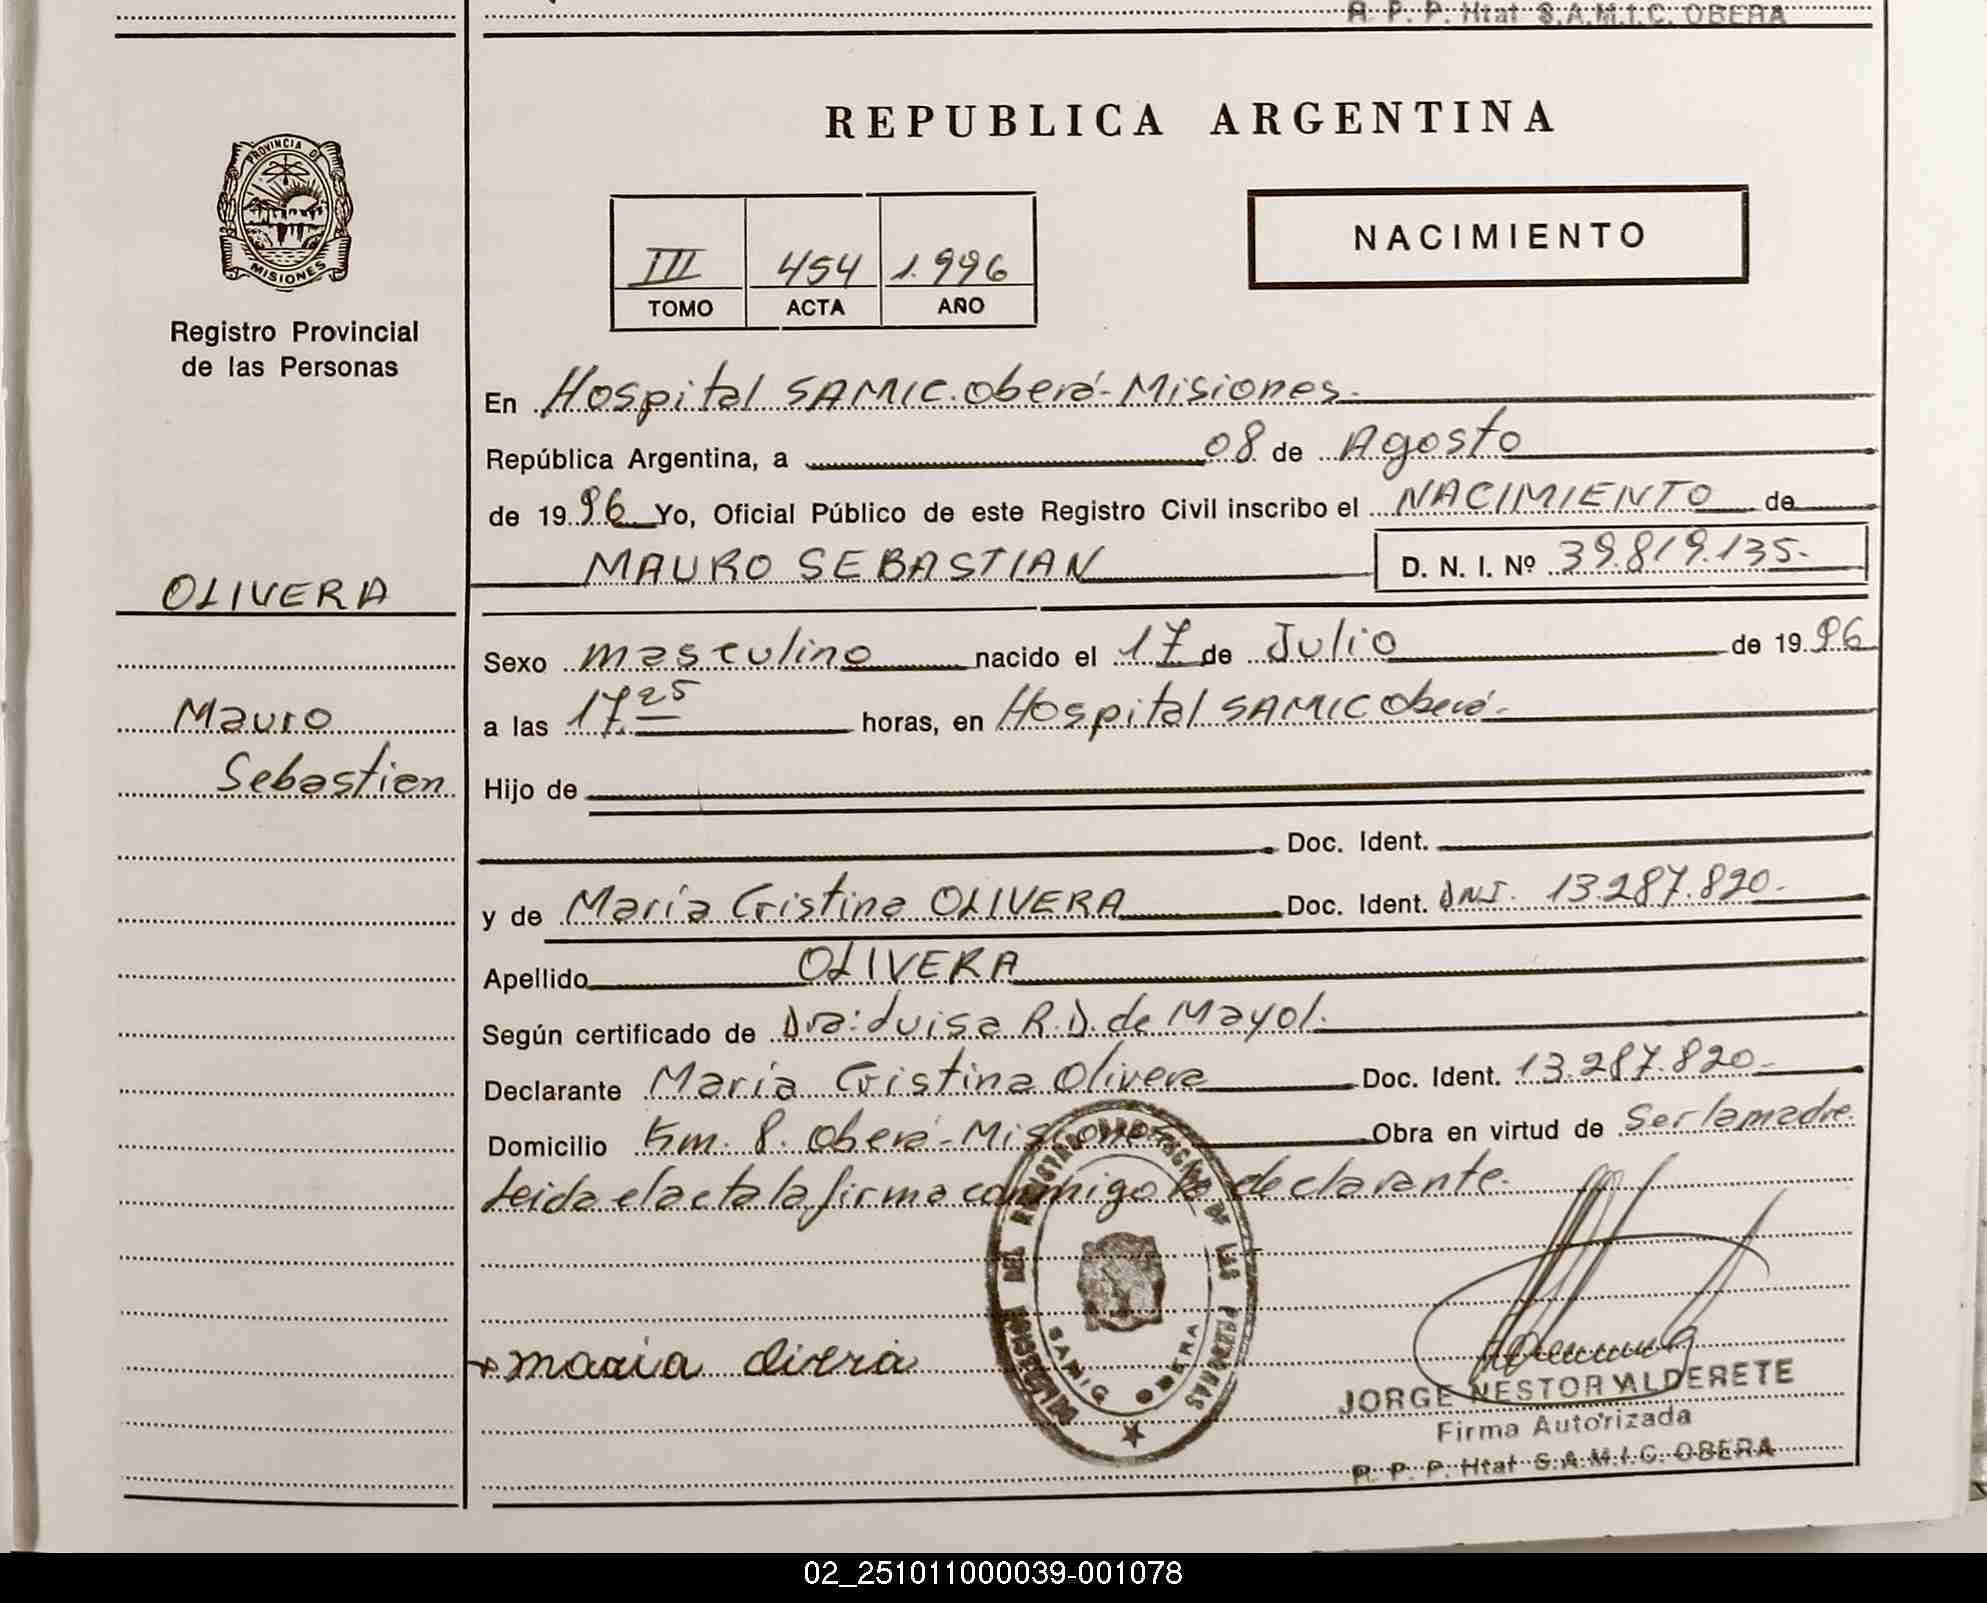 R. P. P. Htat S.A.M.I.C. OBERA
PROVINCIA DE
MISIONES
Registro Provincial
de las Personas
REPUBLICA ARGENTINA
III 454 1.996
TOMO ACTA AÑO
NACIMIENTO
En Hospital SAMIC. Oberá - Misiones.
República Argentina, a 08 de Agosto
de 1996 Yo, Oficial Público de este Registro Civil inscribo el NACIMIENTO de
MAURO SEBASTIAN D. N. I. Nº 39.819.135.-
OLIVERA
Mauro
Sebastian
Sexo masculino nacido el 17 de Julio de 1996
a las 17.25 horas, en Hospital SAMIC Oberá.-
Hijo de
Doc. Ident.
y de María Cristina OLIVERA Doc. Ident. DNI. 13.287.820.-
Apellido OLIVERA
Según certificado de Dra: Luisa R.D. de Mayol.
Declarante María Cristina Olivera Doc. Ident. 13.287.820.-
Domicilio Km. 8. Oberá - Misiones Obra en virtud de Ser la madre.
Leida el acta la firma conmigo la declarante.
DEL REGISTRO PROVINCIAL DE LAS PERSONAS
SAMIC OBERA
maria olivera
JORGE NESTOR ALDERETE
Firma Autorizada
R. P. P. Htat S.A.M.I.C. OBERA
02_251011000039-001078